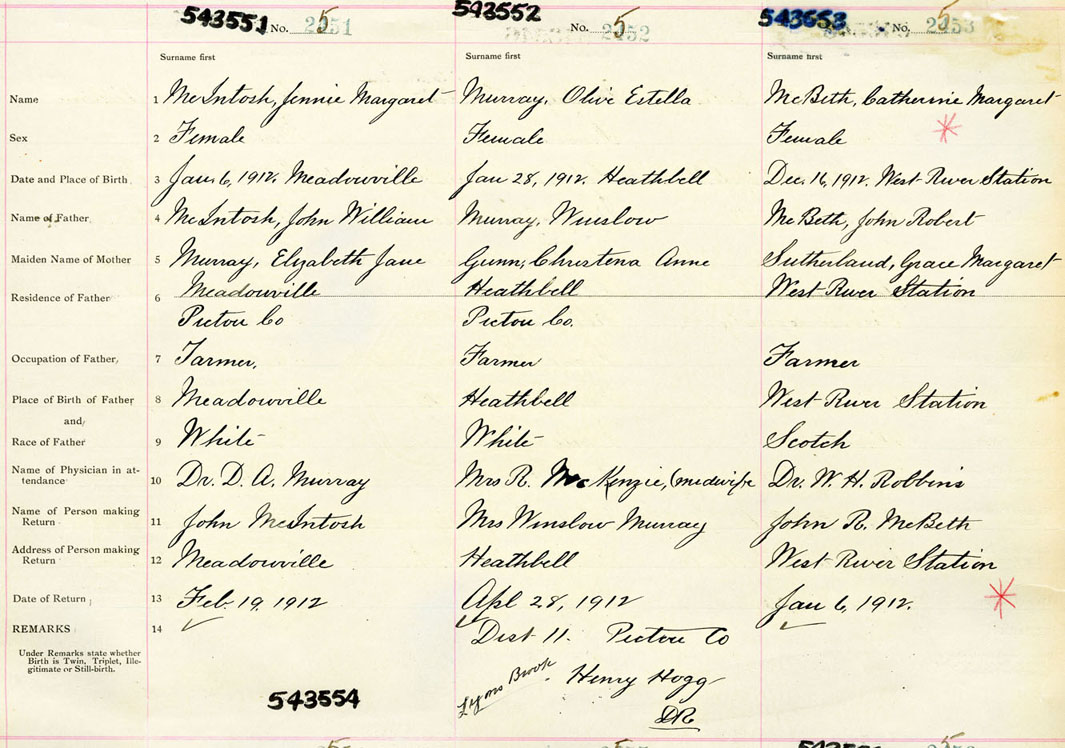 543551 No. 5 2051 543552 No. 5 2052 543553 No. 5 2053
Surname first Surname first Surname first
Name 1 McIntosh, Jennie Margaret Murray, Olive Estella McBeth, Catherine Margaret
Sex 2 Female Female Female
Date and Place of Birth 3 Jan. 6, 1912. Meadowville Jan 28, 1912. Heathbell Dec. 16, 1912. West River Station
Name of Father 4 McIntosh, John William Murray, Winslow McBeth, John Robert
Maiden Name of Mother 5 Murray, Elyabeth Jane Gunn, Christena Anne Sutherland, Grace Margaret
Residence of Father 6 Meadowville Heathbell West River Station
Pictou Co Pictou Co.
Occupation of Father, 7 Farmer, Farmer Farmer
Place of Birth of Father 8 Meadowville Heathbell West River Station
and
Race of Father 9 White White Scotch
Name of Physician in at-
tendance 10 Dr. D. A. Murray Mrs R. McKenzie, (midwife Dr. W. H. Robbins
Name of Person making
Return 11 John McIntosh Mrs Winslow Murray John R. McBeth
Address of Person making
Return 12 Meadowville Heathbell West River Station
Date of Return 13 Feb. 19 1912 Apl 28, 1912 Jan 6, 1912.
REMARKS 14 Dist 11. Pictou Co
Under Remarks state whether
Birth is Twin, Triplet, Ille-
gitimate or Still-birth.
Lyons Brook Henry Hogg
543554 DR